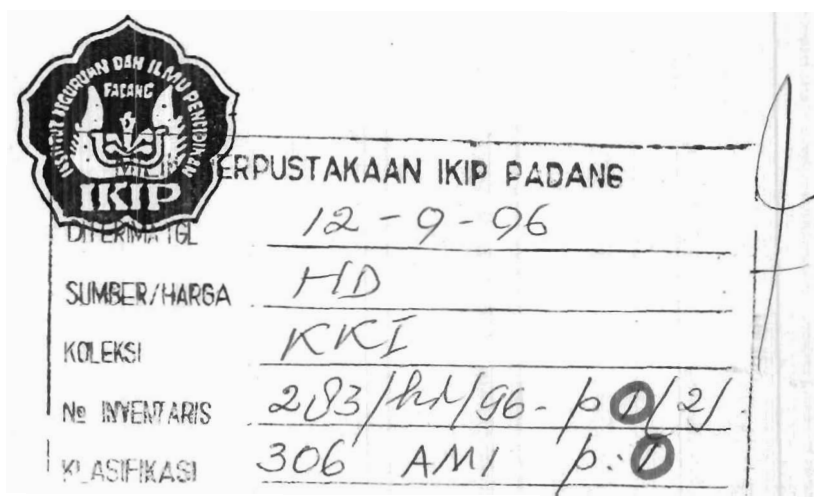 INSTITUT KEGURUAN DAN ILMU PENDIDIKAN
PADANG
IKIP
PERPUSTAKAAN IKIP PADANG
DITERIMA TGL 12-9-96
SUMBER/HARGA HD
KOLEKSI KKI
No INVENTARIS 283/hd/96-p0/2/
KLASIFIKASI 306 AMI p.0